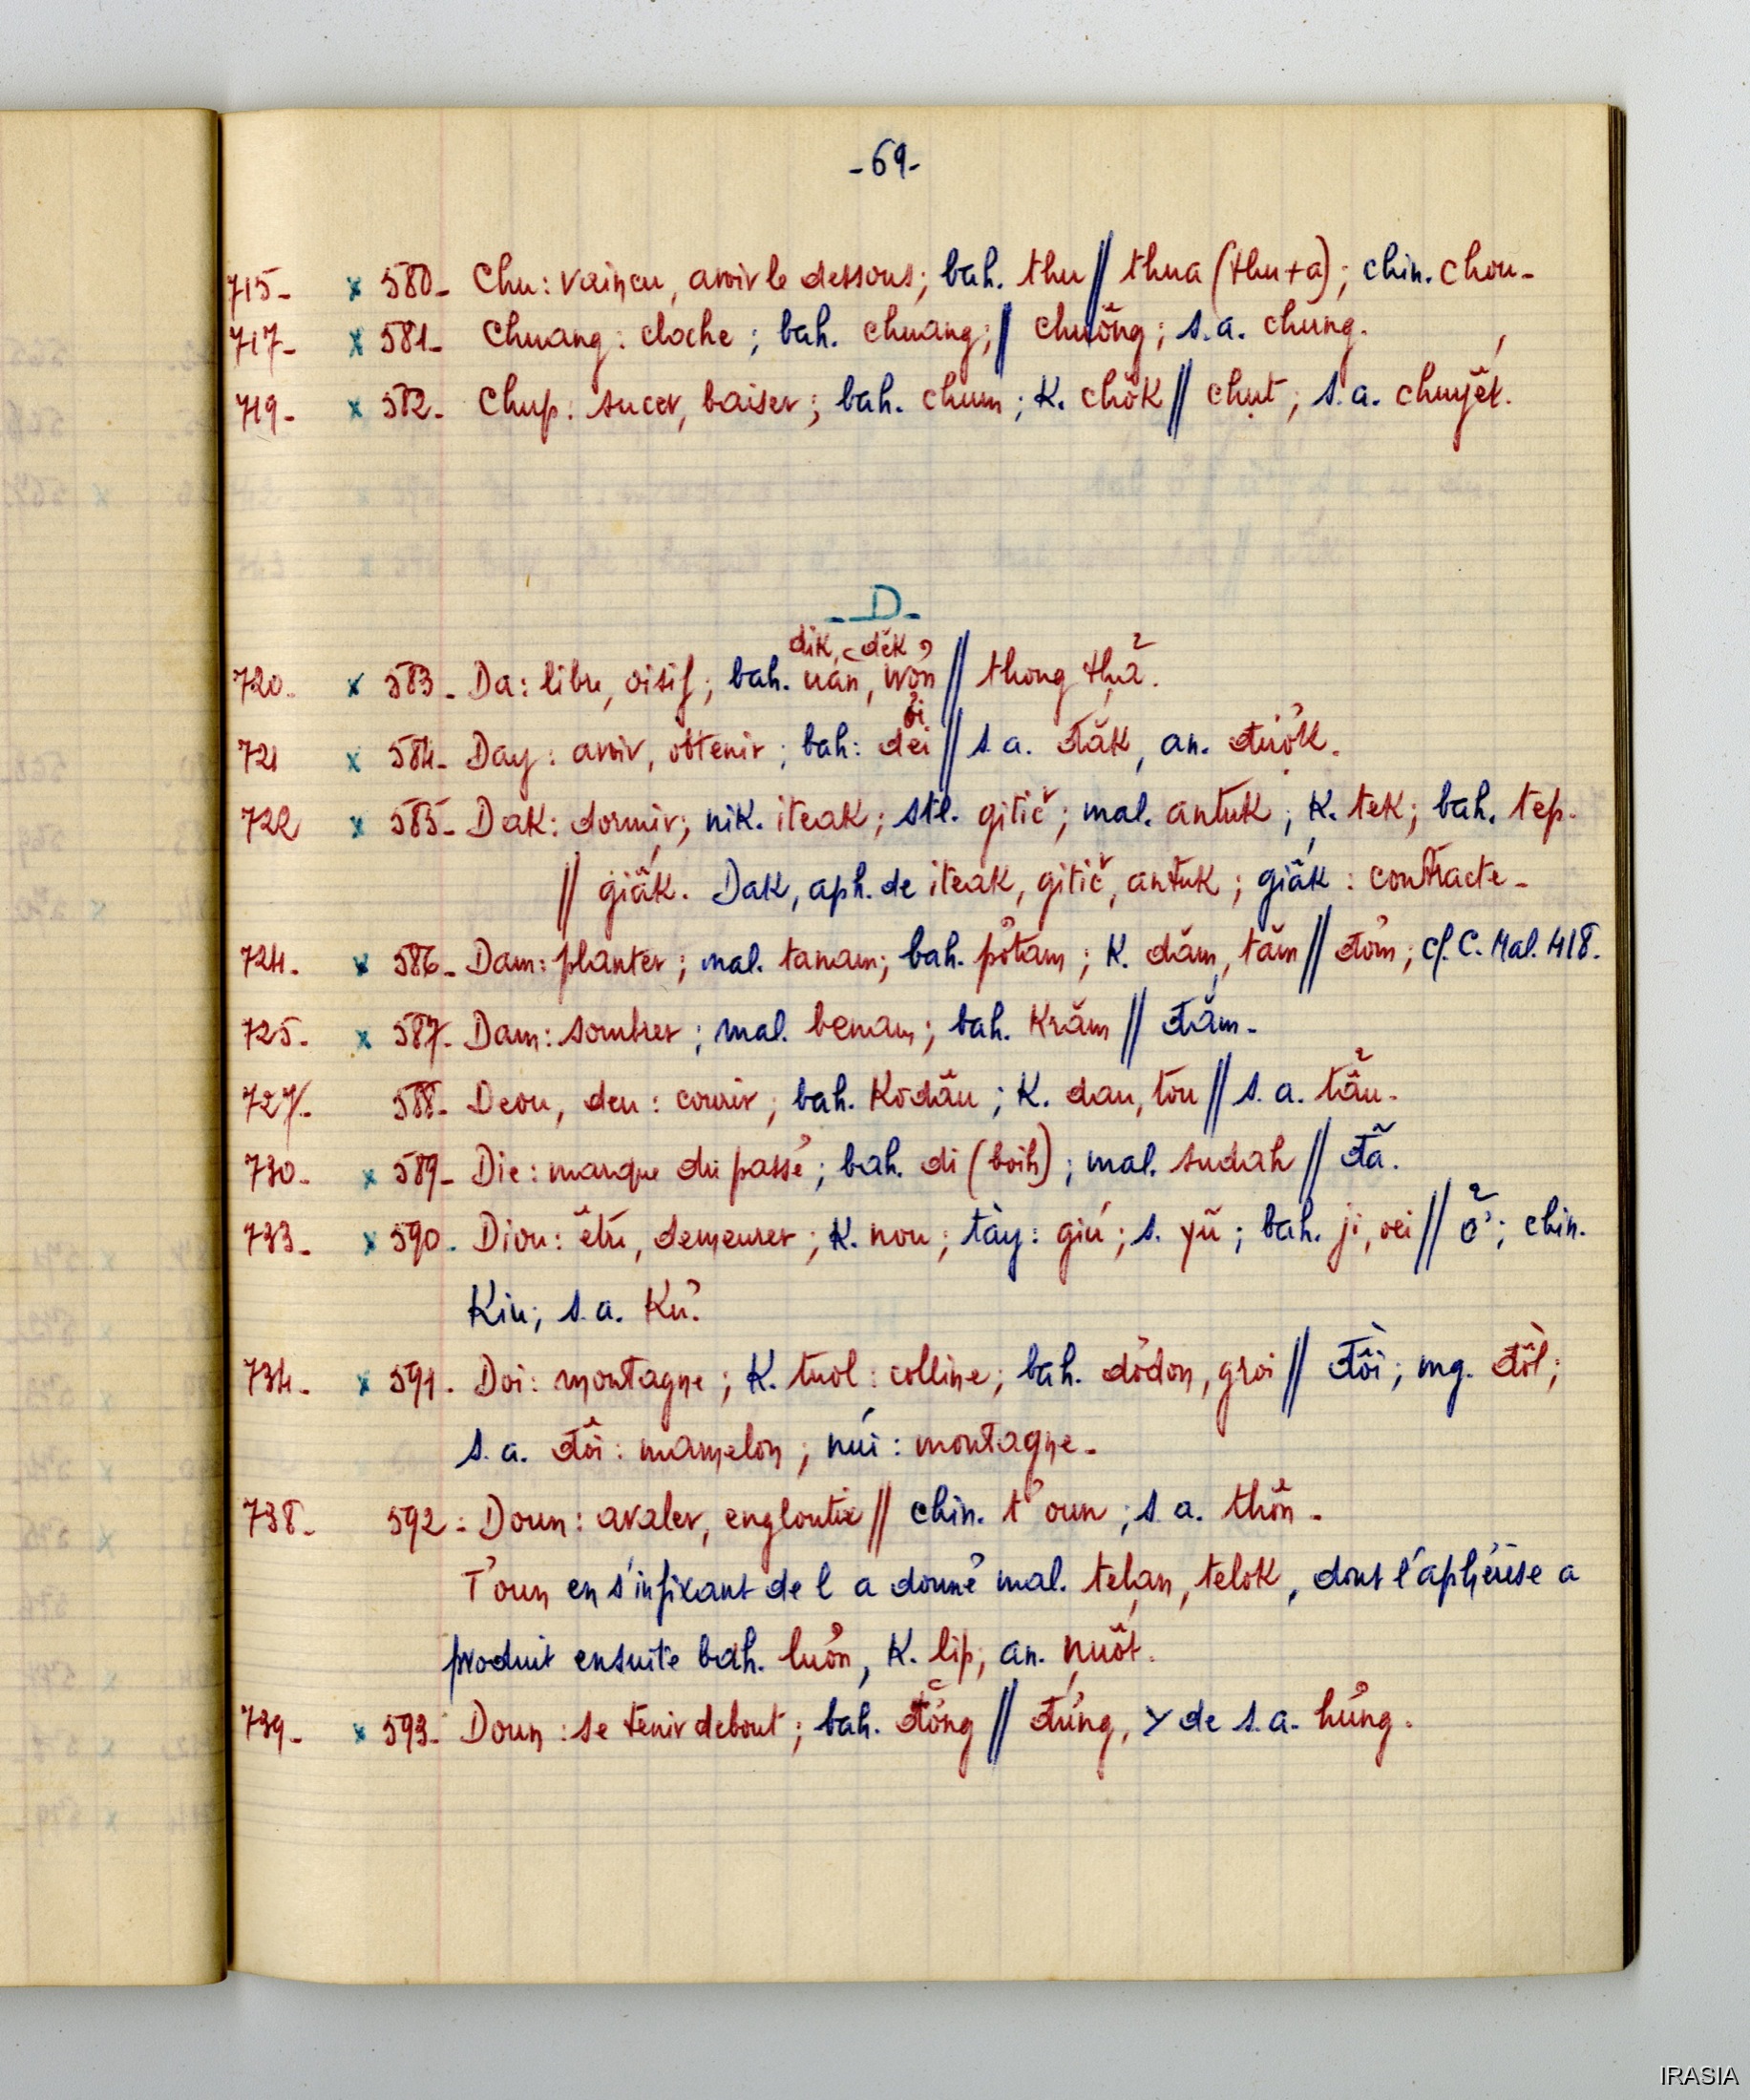 -69-
715- x 580- Chu: vaincu, avoir le dessous; bah. thu // thua (thu+a); chin. chou-
717- x 581- Chuang: cloche; bah. chuang; // chuông; s.a. chung.
719- x 582- Chup: sucer, baiser; bah. chum; K. chŏk // chụt; s.a. chuyết.
-D-
dik, dĕk
720. x 583- Da: libre, oisif; bah. uăn, won // thong thả.
ơi
721 x 584- Day: avoir, obtenir; bah: dei // s.a. đăk, an. được.
722 x 585- Dak: dormir; nik. iteak; stl. gitič; mal. antuk; K. tek; bah. tep.
// giấk. Dak, aph. de iteak, gitič, antuk; giấk: contracte-
724. x 586- Dam: planter; mal. tanam; bah. pơtam; K. dăm, tăm // đơm; cf. C. Mal. 418.
725. x 587- Dam: sombrer; mal. benam; bah. krăm // đắm-
727- 588- Deou, deu: courir; bah. kodău; K. dau, tou // s.a. tẩu-
730- x 589- Die: marque du passé; bah. di (boih); mal. sudah // đã.
733- x 590- Diou: être, demeurer; K. nou; tày: giú; s. yŭ; bah. ji, oei // ở; chin.
Kiu; s.a. Kư.
734- x 591- Doi: montagne; K. tuol: colline; bah. dơdon, groi // đồi; mg. đồl;
s.a. đôi: mamelon; núi: montagne-
738- 592- Doun: avaler, engloutir // chin. t'oun; s.a. thôn-
T'oun en s'infixant de l a donné mal. telan, telok, dont l'aphérèse a
produit ensuite bah. luơn, K. lip, an. nuốt.
739- x 593- Doun: se tenir debout; bah. đơ̆ng // đứng, Y de s.a. hưng.
IRASIA